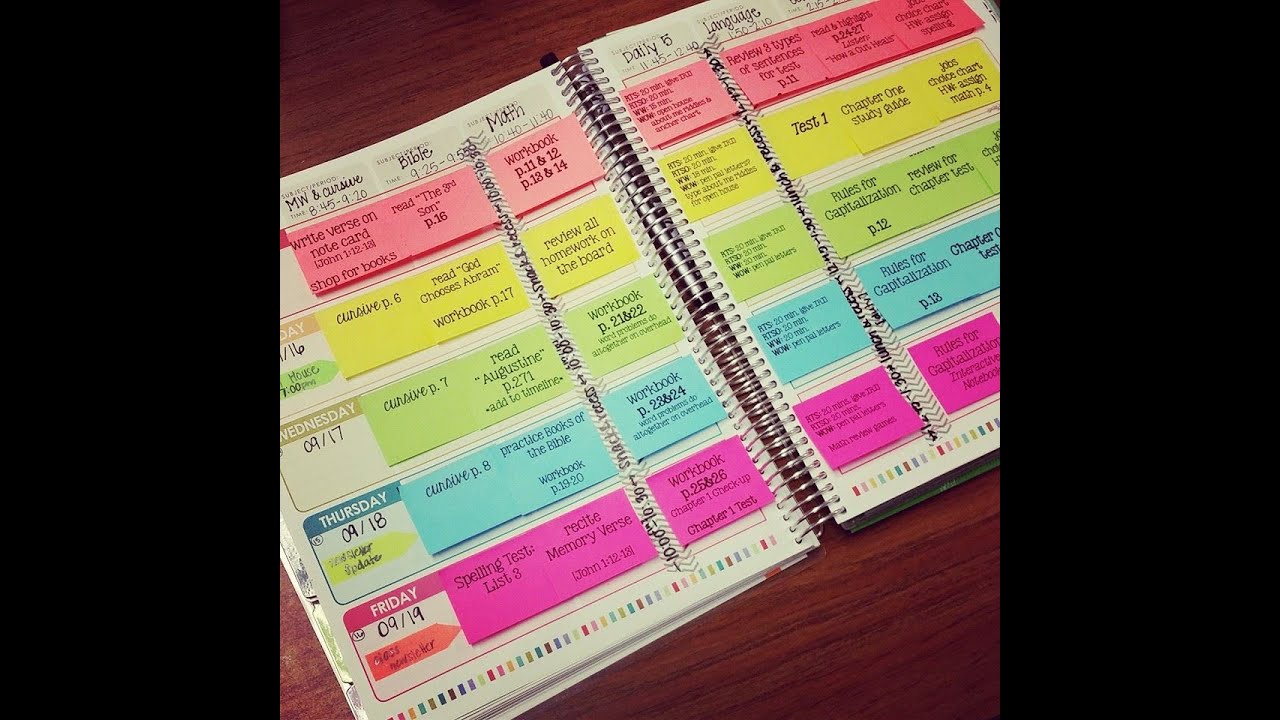 SUBJECT/PERIOD:
MW & cursive
TIME: 8:45-9:20
SUBJECT/PERIOD:
Bible
9:25-9:5
SUBJECT/PERIOD:
Math
10:40-11:40
write verse on
note card
[John 1:12-13]
shop for books
read "The 3rd
Son"
p.16
workbook
p.11 & 12
p.13 & 14
DAY
/16
House
7:00pm
cursive p. 6
read "God
Chooses Abram"
workbook p.17
review all
homework on
the board
WEDNESDAY
09/17
cursive p. 7
read
"Augustine"
p.271
•add to timeline•
Workbook
p. 21&22
word problems do
altogether on overhead
THURSDAY
09/18
Update
cursive p. 8
practice Books of
the Bible
workbook
p.19-20
Workbook
p. 23&24
word problems do
altogether on overhead
FRIDAY
09/19
class
newsletter
Spelling Test:
List 3
recite
Memory Verse
[John 1:12-13]
Workbook
p.25&26
Chapter 1 Check-up
Chapter 1 Test
SUBJECT/PERIOD:
Daily 5
TIME: 11:45-12:40
SUBJECT/PERIOD:
Language
1:50-2:10
2:15-2
RTS: 20 min. give IRN
RTSO: 20 min.
WW: 15 min.
WOW: open house
about me riddles &
anchor chart
Review 3 types
of sentences
for test
p.11
read & highlight
p.24-27
Listen:
"How a Cut Heals"
jobs
choice chart
HW: assign
spelling
RTS: 20 min. give IRN
RTSO: 20 min.
WW: 15 min.
WOW: pen pal letters?
type about me riddles
for open house
Test 1
Chapter One
study guide
jobs
choice chart
HW: assign
math p. 4
RTS: 20 min. give IRN
RTSO: 20 min.
WW: 20 min.
WOW: pen pal letters
Rules for
Capitalization
p.12
review for
chapter test
jobs
choice
HW:
RTS: 20 min. give IRN
RTSO: 20 min.
WW: 20 min.
WOW: pen pal letters
Rules for
Capitalization
p.13
Chapter One
test
RTS: 20 min. give IRN
RTSO: 20 min.
WOW: pen pal letters
Math review games
Rules for
Capitalization
Interactive
Notebook